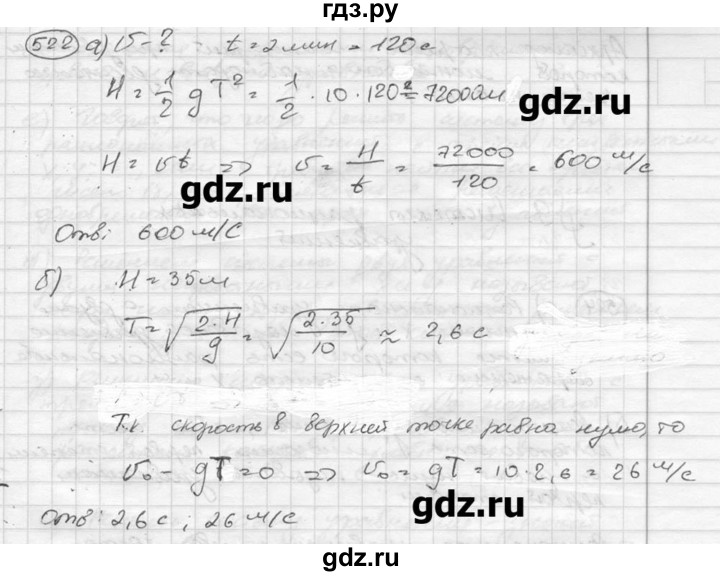 гдз.ру
522 а) v - ? t = 2 мин = 120 с
H = 1/2 gT² = 1/2 · 10 · 120² = 72000 м
H = vt => v = H/t = 72000/120 = 600 м/с
gdz.ru
Отв: 600 м/с
б) H = 35 м
T = √(2·H/g) = √(2·35/10) ≈ 2,6 с
Т.к. скорость в верхней точке равна нулю, то
v₀ - gT = 0 => v₀ = gT = 10 · 2,6 = 26 м/с
Отв: 2,6 с ; 26 м/с
gdz.ru
gdz.ru